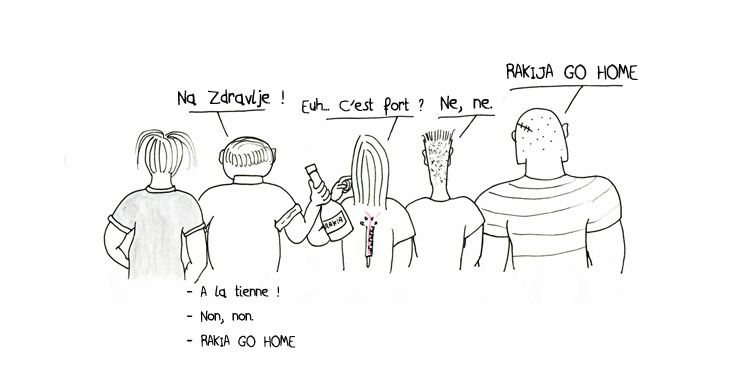 Na Zdravlje !
Euh... C'est fort ?
Ne, ne.
RAKIJA GO HOME
RAKIA
- A la tienne !
- Non, non.
- RAKIA GO HOME